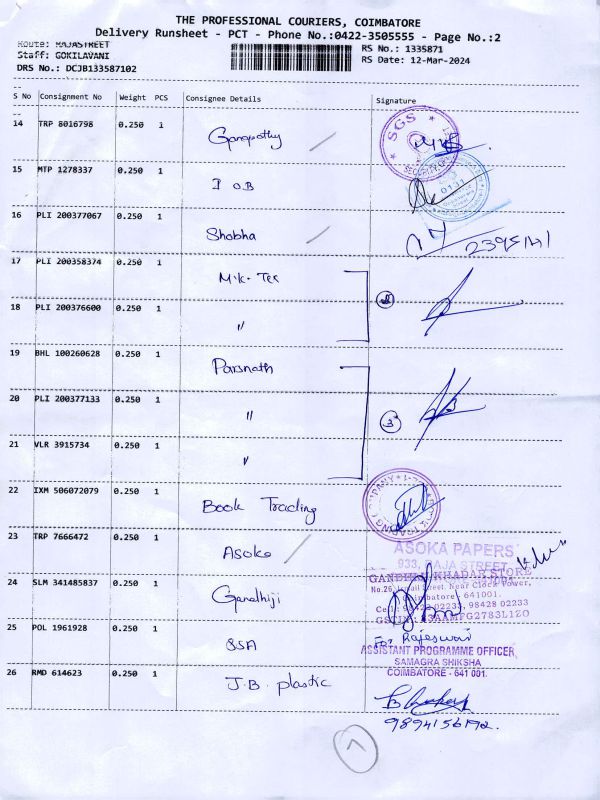 THE PROFESSIONAL COURIERS, COIMBATORE
Delivery Runsheet - PCT - Phone No.:0422-3505555 - Page No.:2
Route: RAJASTREET
Staff: GOKILAVANI
DRS No.: DCJB133587102
RS No.: 1335871
RS Date: 12-Mar-2024
S No Consignment No Weight PCS Consignee Details Signature
14 TRP 8016798 0.250 1 Ganapathy
SGS
SECURITY
15 MTP 1278337 0.250 1 I OB
0131
16 PLI 200377067 0.250 1 Shobha
17 PLI 200358374 0.250 1 M.K. Tex
18 PLI 200376600 0.250 1 "
19 BHL 100260628 0.250 1 Parsnath
20 PLI 200377133 0.250 1 "
3
21 VLR 3915734 0.250 1 "
22 IXM 506072079 0.250 1 Book Trading
23 TRP 7666472 0.250 1 Asoka
ASOKA PAPERS
933, RAJA STREET
24 SLM 341485837 0.250 1 Gandhiji
KHADAR STORE
Near Clock Tower,
Coimbatore 641001.
02233, 98428 02233
25 POL 1961928 0.250 1 SSA
For Rajeswari
ASSISTANT PROGRAMME OFFICER
SAMAGRA SHIKSHA
COIMBATORE - 641 001.
26 RMD 614623 0.250 1 J.B. plastic
9894156192.